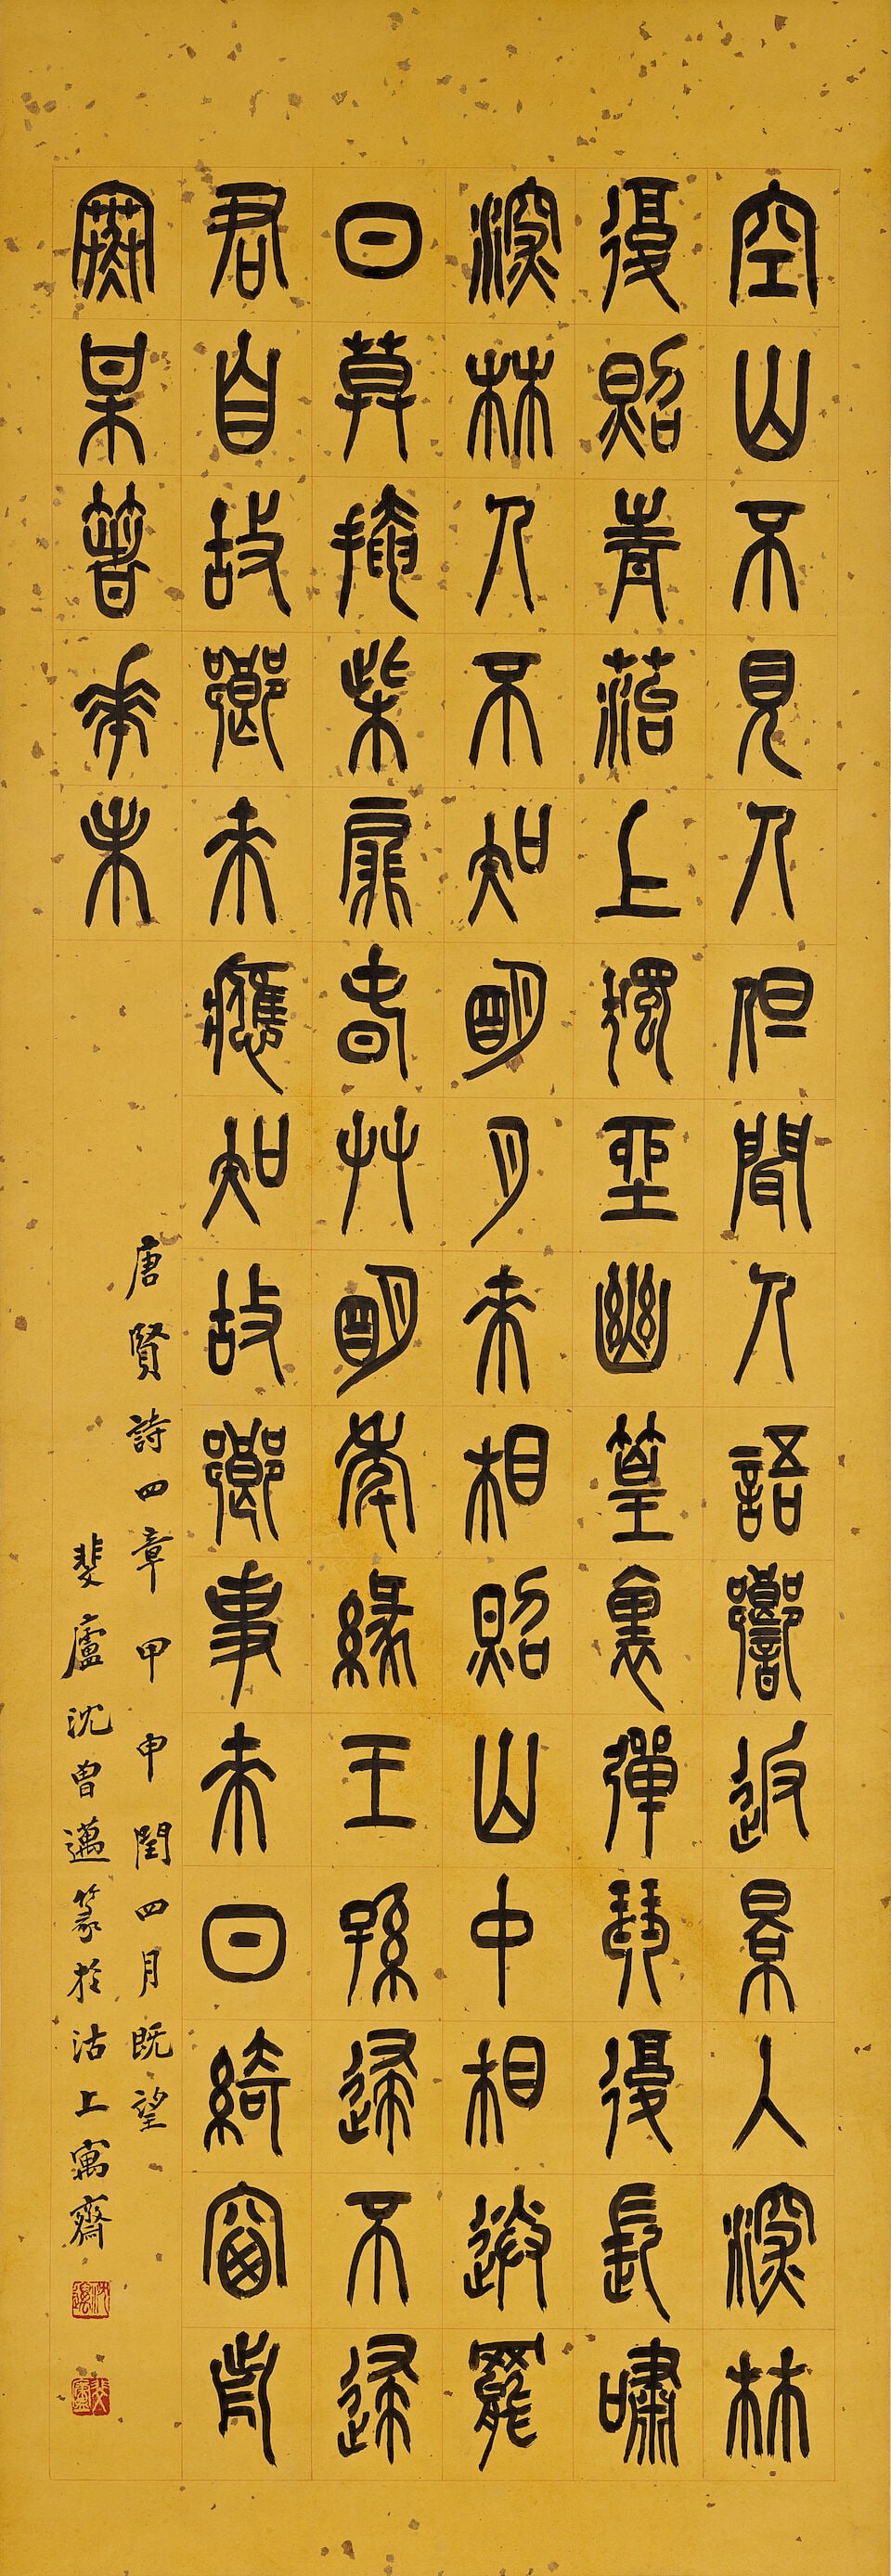 空山不見人但聞人語響返景入深林
復照青菭上獨坐幽篁裏彈琴復長嘯
深林人不知明月來相照山中相送罷
日莫掩柴扉春艸明年緣王孫歸不歸
君自故鄉來應知故鄉事來日綺窗前
寒某箸華未
唐賢詩四章甲申閏四月既望
斐廬沈曾邁篆於沽上寓齋
斐廬